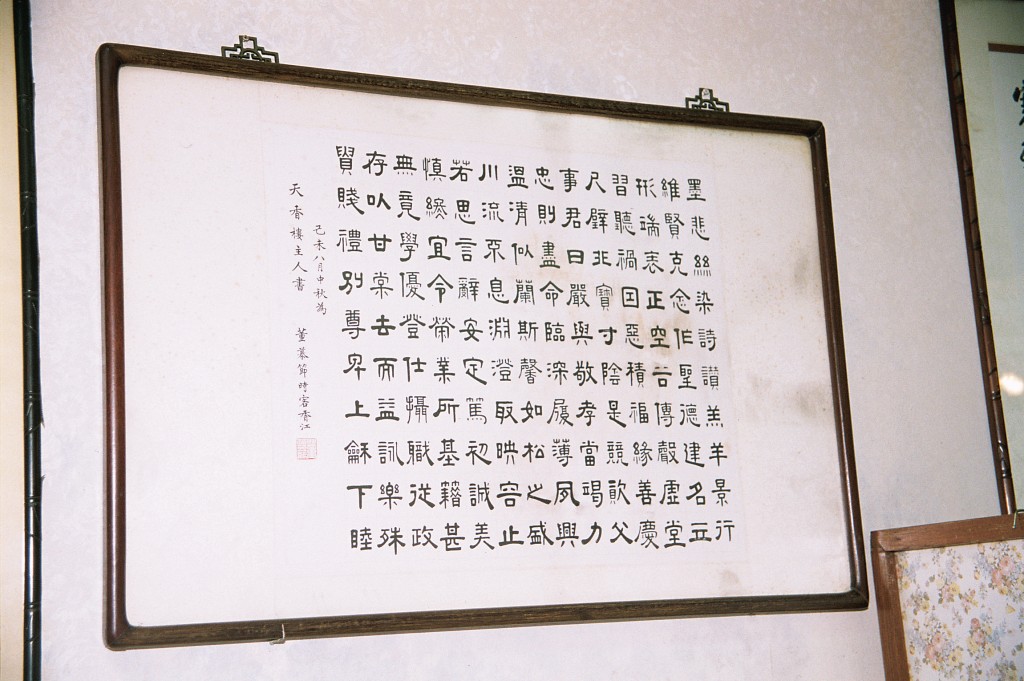 墨悲絲染詩讚羔羊景行
維賢克念作聖德建名立
形端表正空谷傳聲虛堂
習聽禍因惡積福緣善慶
尺璧非寶寸陰是競資父
事君曰嚴與敬孝當竭力
忠則盡命臨深履薄夙興
溫清似蘭斯馨如松之盛
川流不息淵澄取映容止
若思言辭安定篤初誠美
慎終宜令榮業所基籍甚
無竟學優登仕攝職從政
存以甘棠去而益詠樂殊
貴賤禮別尊卑上龢下睦
己未八月中秋為 董慕節時客香江
天香樓主人書